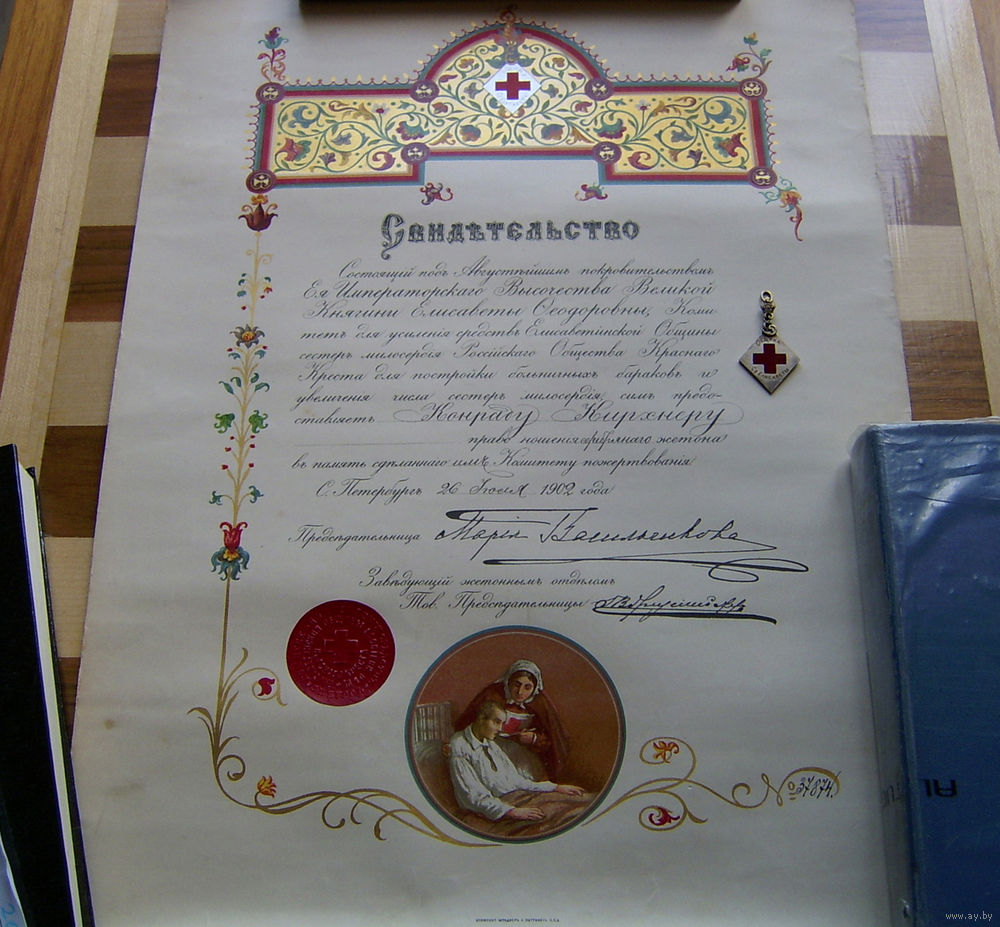 Свидѣтельство
Состоящій подъ Августѣйшимъ покровительствомъ
Ея Императорскаго Высочества Великой
Княгини Елисаветы Ѳеодоровны, Коми-
тетъ для усиленія средствъ Елисаветинской Общины
сестеръ милосердія Россійскаго Общества Краснаго
Креста для постройки больничныхъ бараковъ и
увеличенія числа сестеръ милосердія, симъ предо-
ставляетъ Конраду Кирхнеру
право ношенія серебрянаго жетона
въ память сдѣланнаго имъ Комитету пожертвованія
С. Петербургъ 26 Іюля 1902 года
Предсѣдательница Марія Васильчикова
Завѣдующій жетоннымъ отдѣломъ
Тов. Предсѣдательницы
№ 37874.
www.ay.by